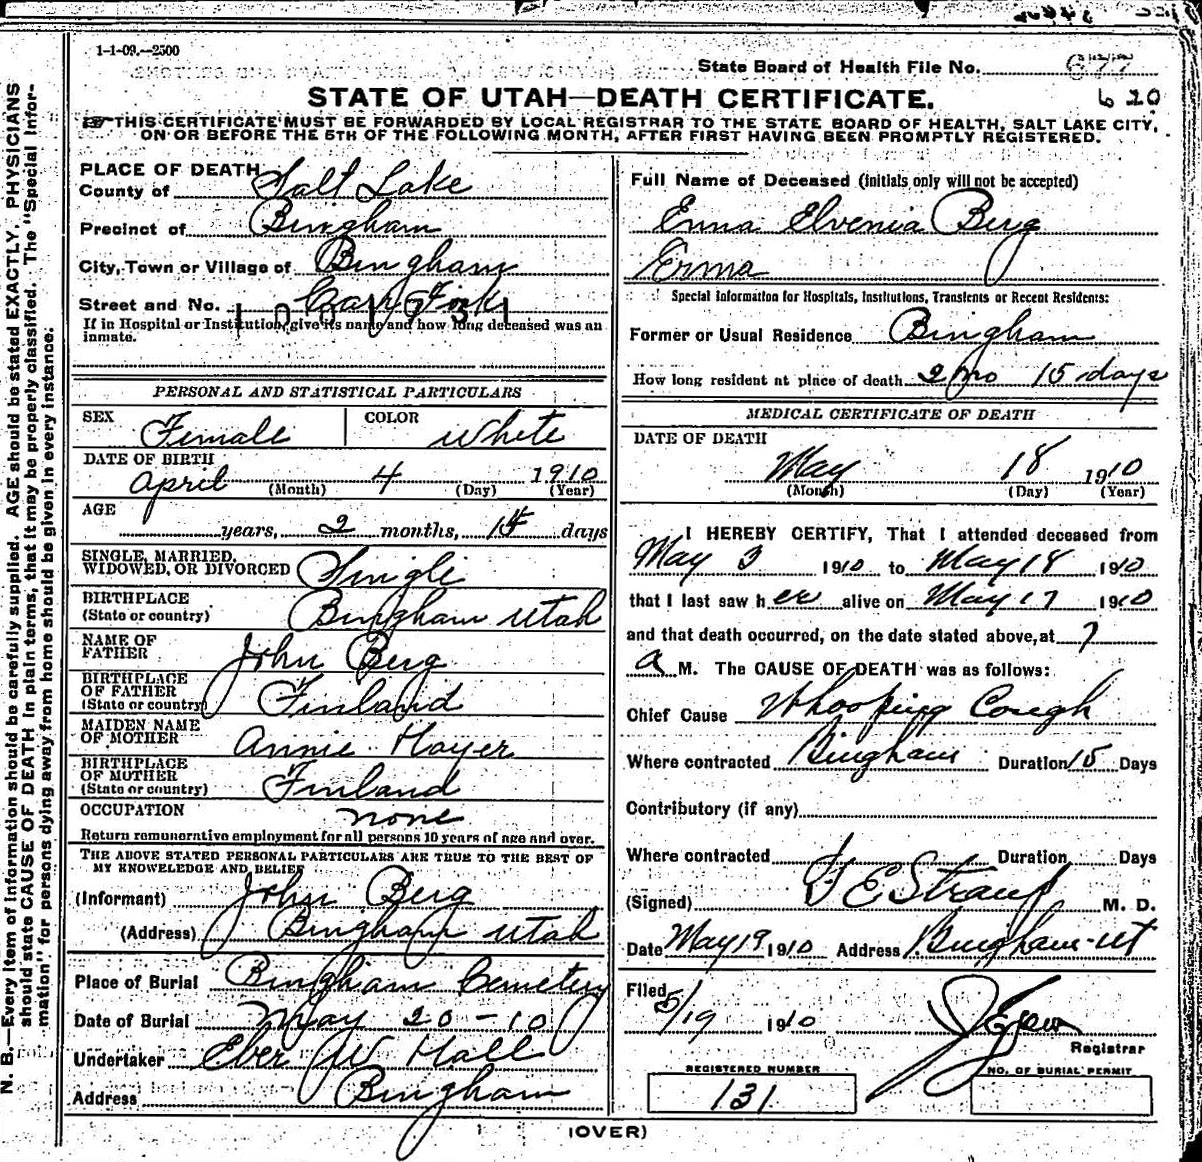 1-1-09.—2500
State Board of Health File No. 677
620
STATE OF UTAH—DEATH CERTIFICATE.
THIS CERTIFICATE MUST BE FORWARDED BY LOCAL REGISTRAR TO THE STATE BOARD OF HEALTH, SALT LAKE CITY,
ON OR BEFORE THE 5TH OF THE FOLLOWING MONTH, AFTER FIRST HAVING BEEN PROMPTLY REGISTERED.
N. B.—Every item of information should be carefully supplied. AGE should be stated EXACTLY. PHYSICIANS
should state CAUSE OF DEATH in plain terms, that it may be properly classified. The "Special Infor-
mation" for persons dying away from home should be given in every instance.
PLACE OF DEATH
County of Salt Lake
Precinct of Bingham
City, Town or Village of Bingham
Street and No. Carr Fork
If in Hospital or Institution, give its name and how long deceased was an
inmate.
PERSONAL AND STATISTICAL PARTICULARS
SEX Female COLOR White
DATE OF BIRTH
April 4 1910
(Month) (Day) (Year)
AGE
years, 2 months, 14 days
SINGLE, MARRIED,
WIDOWED, OR DIVORCED Single
BIRTHPLACE
(State or country) Bingham Utah
NAME OF
FATHER John Berg
BIRTHPLACE
OF FATHER
(State or country) Finland
MAIDEN NAME
OF MOTHER Annie Hayer
BIRTHPLACE
OF MOTHER
(State or country) Finland
OCCUPATION none
Return remunerative employment for all persons 10 years of age and over.
THE ABOVE STATED PERSONAL PARTICULARS ARE TRUE TO THE BEST OF
MY KNOWLEDGE AND BELIEF
(Informant) John Berg
(Address) Bingham Utah
Place of Burial Bingham Cemetery
Date of Burial May 20-10
Undertaker Eber W Hall
Address Bingham
Full Name of Deceased (initials only will not be accepted)
Enna Elvenia Berg
Erma
Special Information for Hospitals, Institutions, Transients or Recent Residents:
Former or Usual Residence Bingham
How long resident at place of death 2 mo 15 days
MEDICAL CERTIFICATE OF DEATH
DATE OF DEATH
May 18 1910
(Month) (Day) (Year)
I HEREBY CERTIFY, That I attended deceased from
May 3 1910 to May 18 1910
that I last saw her alive on May 17 1910
and that death occurred, on the date stated above, at 7
a M. The CAUSE OF DEATH was as follows:
Chief Cause Whooping Cough
Where contracted Bingham Duration 15 Days
Contributory (if any)
Where contracted Duration Days
(Signed) F E Straup M. D.
Date May 19 1910 Address Bingham-Ut
Filed
5/19 1910
Registrar
REGISTERED NUMBER
131
NO. OF BURIAL PERMIT
(OVER)